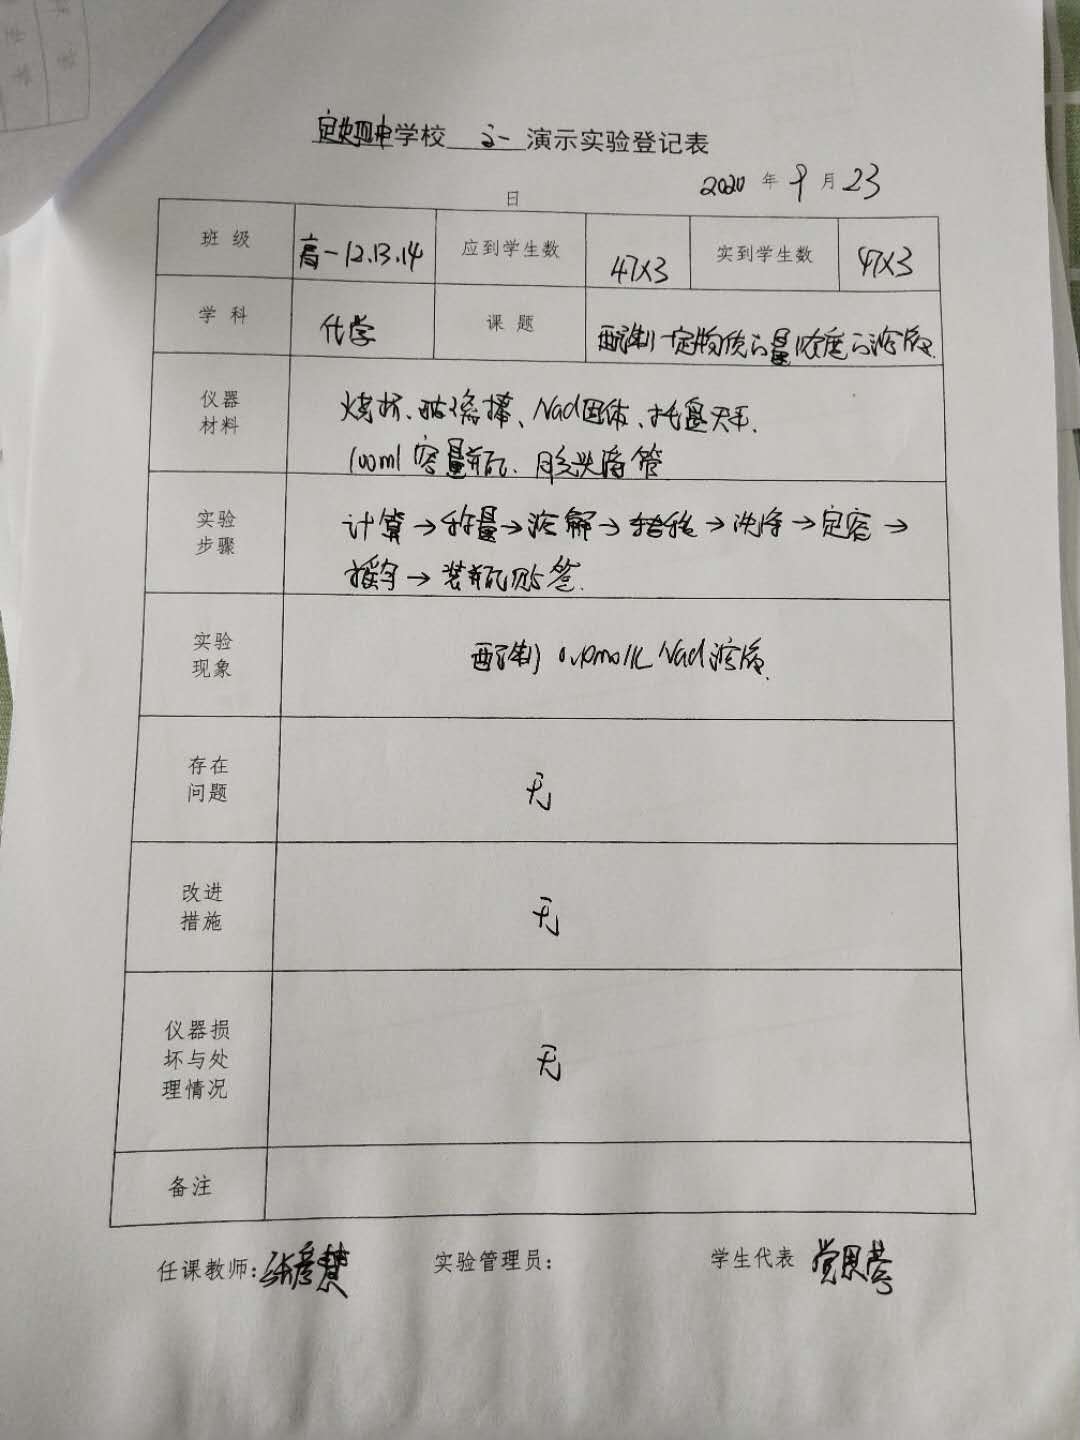 学校 高一 演示实验登记表
2020 年 9 月 23
日
班 级 高一12.13.14 应到学生数 47×3 实到学生数 47×3
学 科 化学 课 题 配制一定物质的量浓度的溶液.
仪器
材料
烧杯、玻璃棒、NaCl固体、托盘天平.
100ml 容量瓶. 胶头滴管
实验
步骤
计算→称量→溶解→转移→洗涤→定容→
摇匀→装瓶贴签.
实验
现象
配制 0.10mol/L NaCl溶液.
存在
问题
无
改进
措施
无
仪器损
坏与处
理情况
无
备注
任课教师: 张彦慧 实验管理员: 学生代表 党思梦